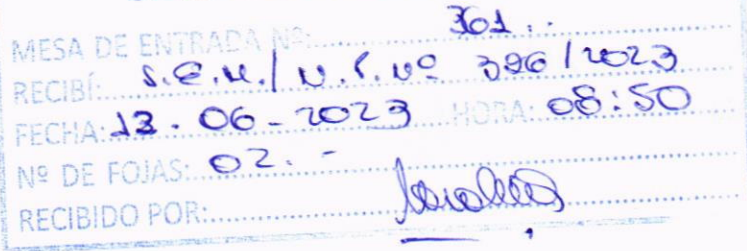 MESA DE ENTRADA Nº: 361..
RECIBÍ: S.E.M./ N.S. Nº 396/2023
FECHA: 13.06-2023 HORA: 08:50
Nº DE FOJAS: 02.-
RECIBIDO POR: